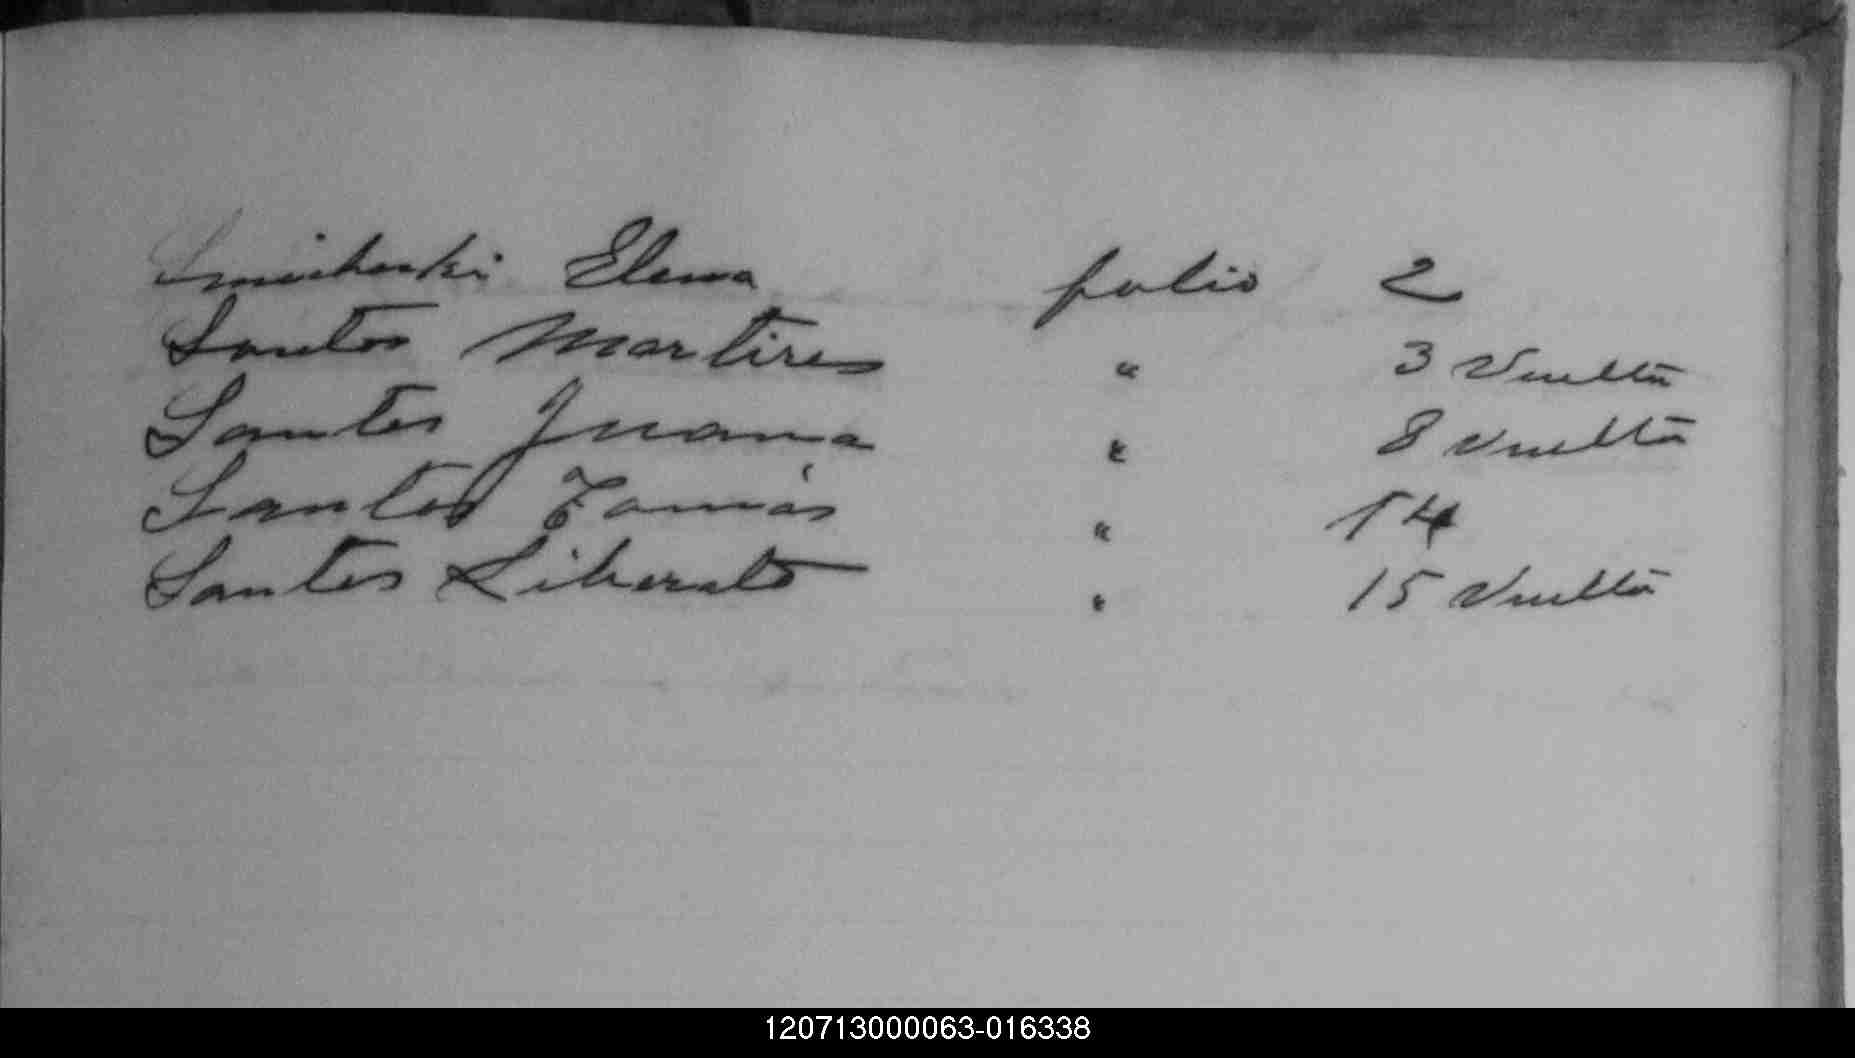 Elena folio 2
Santos Martires " 3 Vuelta
Santos Juana " 8 Vuelta
Santos Tomás " 14
Santos Liberato " 15 Vuelta
120713000063-016338